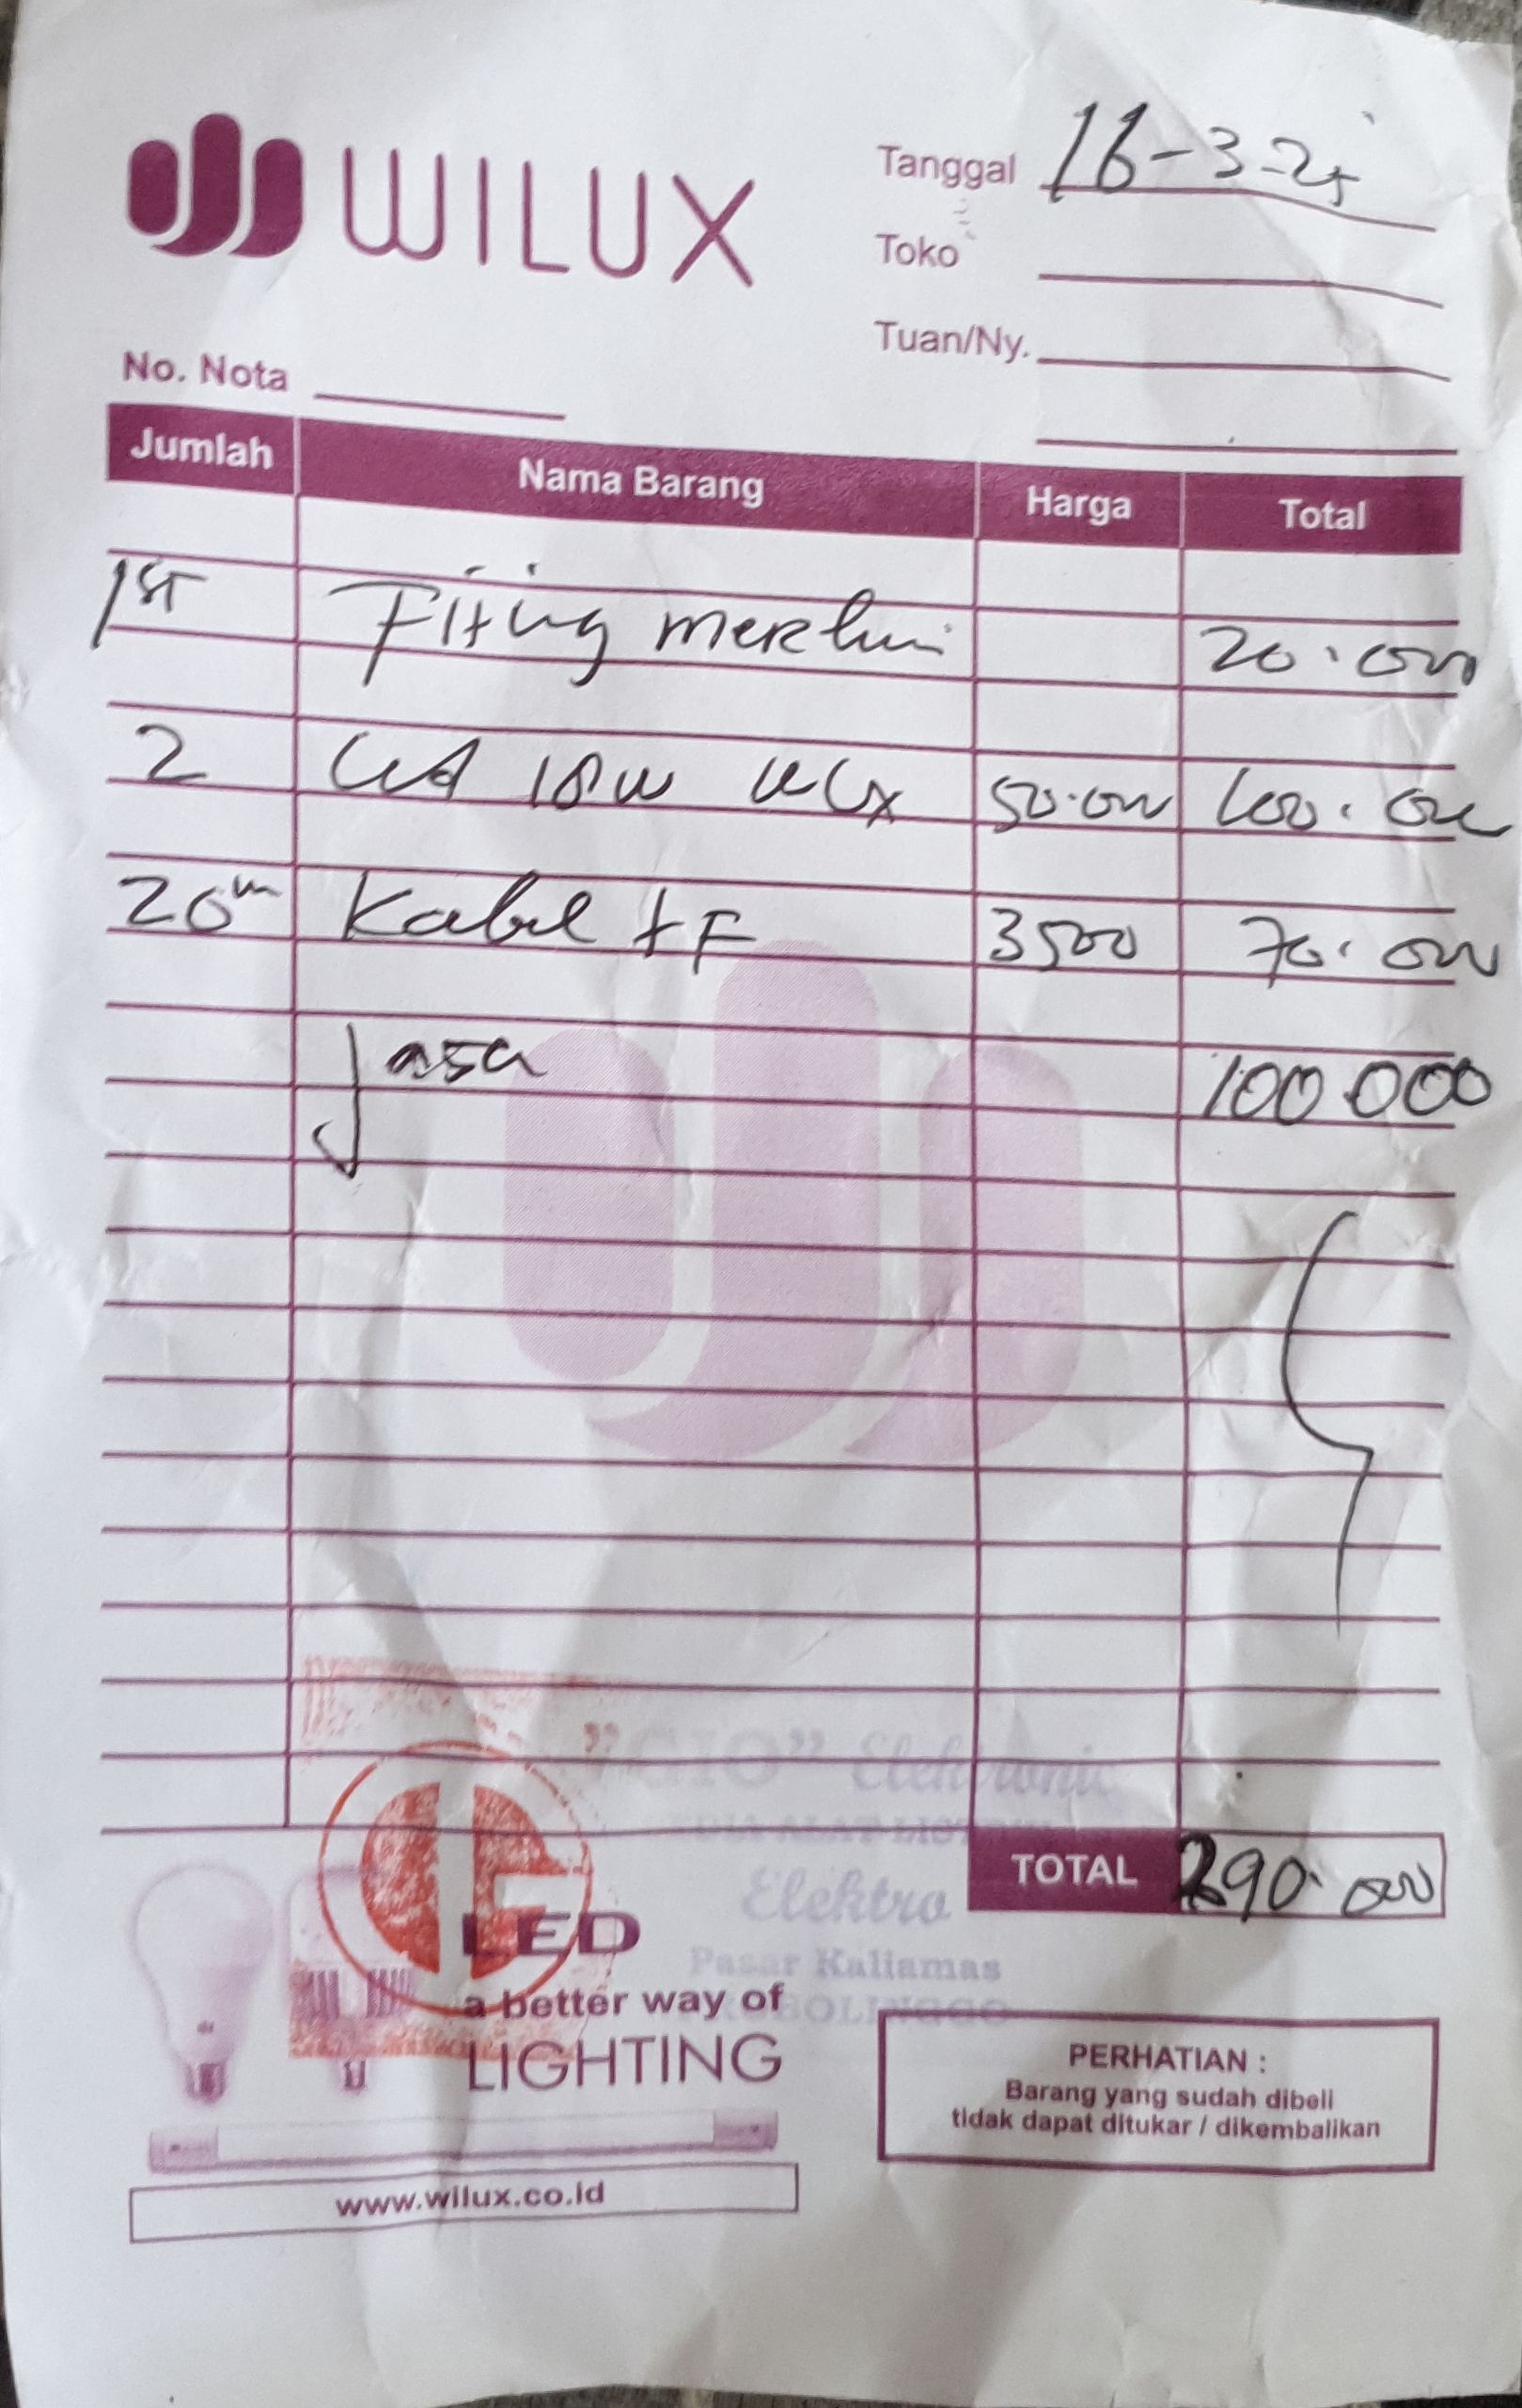 WILUX
Tanggal 16-3-25
Toko
Tuan/Ny.
No. Nota
Jumlah Nama Barang Harga Total
1ST Fiting 20.000
2 LED 18W 50.000 100.000
20m Kabel + F 3500 70.000
Jasa 100 000
"GIO" Elektronic
ALAT LIST
Elektro
Pasar Kaliamas
PROBOLINGGO
TOTAL 290.000
LED
a better way of
LIGHTING
www.wilux.co.id
PERHATIAN :
Barang yang sudah dibeli
tidak dapat ditukar / dikembalikan